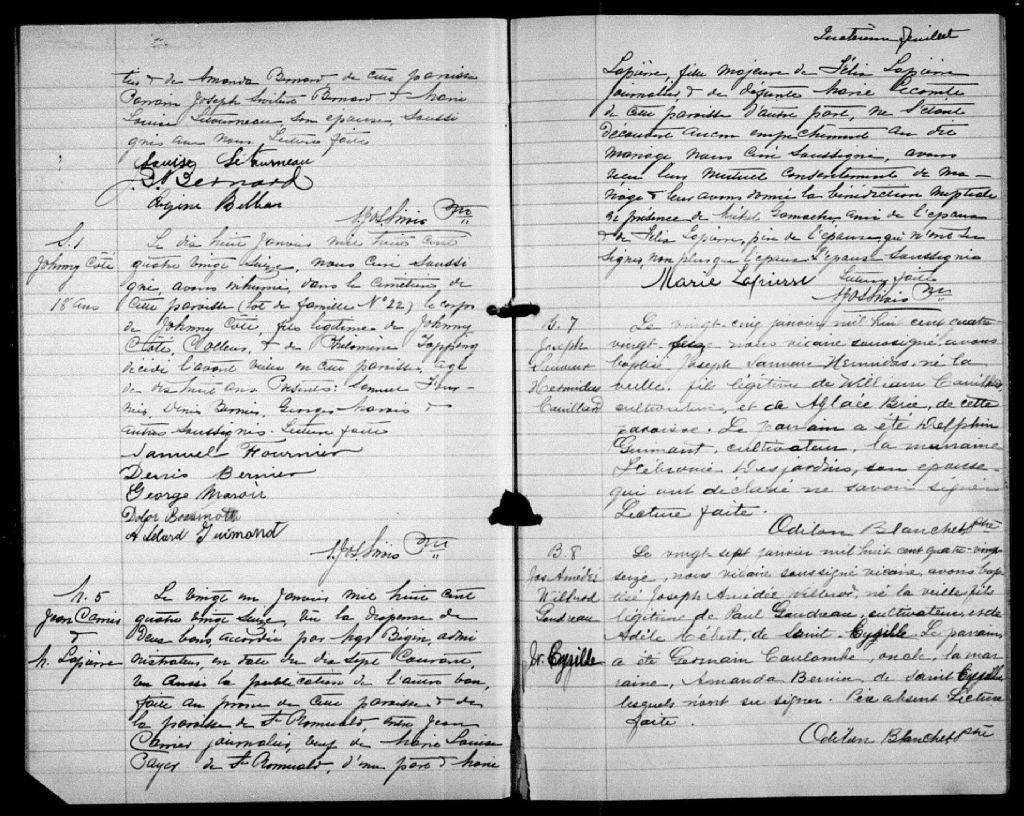 tier & de Amanda Bernard de cette paroisse
Parrain Joseph Bernard & Marie
Louise Létourneau, son épouse, soussi
gnés avec nous. Lecture faite
Louise Létourneau
J. Bernard
Eugène
Ptre
S. 1
Johnny Côté
18 ans
Le dix huit Janvier mil huit cent
quatre vingt seize, nous curé soussi
gné, avons inhumé, dans le cimetière de
cette paroisse (lot de famille No 22) le corps
de Johnny Côté, fils légitime de Johnny
Côté, & de Philomène
décédé l'avant veille en cette paroisse, âgé
de dix huit ans Présents: Samuel Four-
nier, Denis Bernier, Georges Marois &
autres soussignés. Lecture faite
Samuel Fournier
Denis Bernier
George Marois
Adélard Guimond
Ptre
M. 5
Jean Carrier
&
M. Lapierre
Le vingt un Janvier mil huit cent
quatre vingt seize, vu la dispense de
deux bans, accordée par Mgr Bégin, admi
nistrateur, en date du dix sept courant,
vu aussi la publication de l'autre ban,
faite au prône de cette paroisse & de
la paroisse de St Romuald entre Jean
Carrier journalier, veuf de Marie Louise
de St Romuald, d'une part & Marie
Quatrième feuillet
Lapierre, fille majeure de Félix Lapierre
journalier & de défunte Marie Lecomte
de cette paroisse d'autre part, ne s'étant
découvert aucun empêchement au dit
mariage nous curé soussigné, avons
reçu leur mutuel consentement de ma-
riage & leur avons donné la bénédiction nuptiale
en présence de Michel Gamache, ami de l'époux
& de Félix Lapierre, père de l'épouse, qui n'ont su
signer, non plus que l'époux. L'épouse soussignée
Lecture faite
Marie Lapierre
Ptre
B. 7
Joseph
Hermidas
Couillard
Le vingt-cinq janvier mil huit cent quatre
vingt-seize nous vicaire soussigné, avons
baptisé Joseph Hermidas, né la
veille, fils légitime de William Couillard
cultivateur, et de Aglaée Brie, de cette
paroisse. Le parrain a été Delphin
Guimont, cultivateur, la marraine
Desjardins, son épouse
qui ont déclaré ne savoir signer
Lecture faite.
Odilon Blanchet ptre
B. 8
Jos. Amédée
Wilbrod
Gaudreau
St. Cyrille
Le vingt sept janvier mil huit cent quatre-vingt
seize, nous vicaire soussigné vicaire, avons bap
tisé Joseph Amédée Wilbrod, né la veille, fils
légitime de Paul Gaudreau, cultivateur, et de
Adèle Hébert, de Saint-Cyrille. Le parrain
a été Germain Coulombe, oncle, la mar
raine, Amanda Bernier, de Saint Cyrille
lesquels n'ont su signer. Père absent. Lecture
faite.
Odilon Blanchet ptre